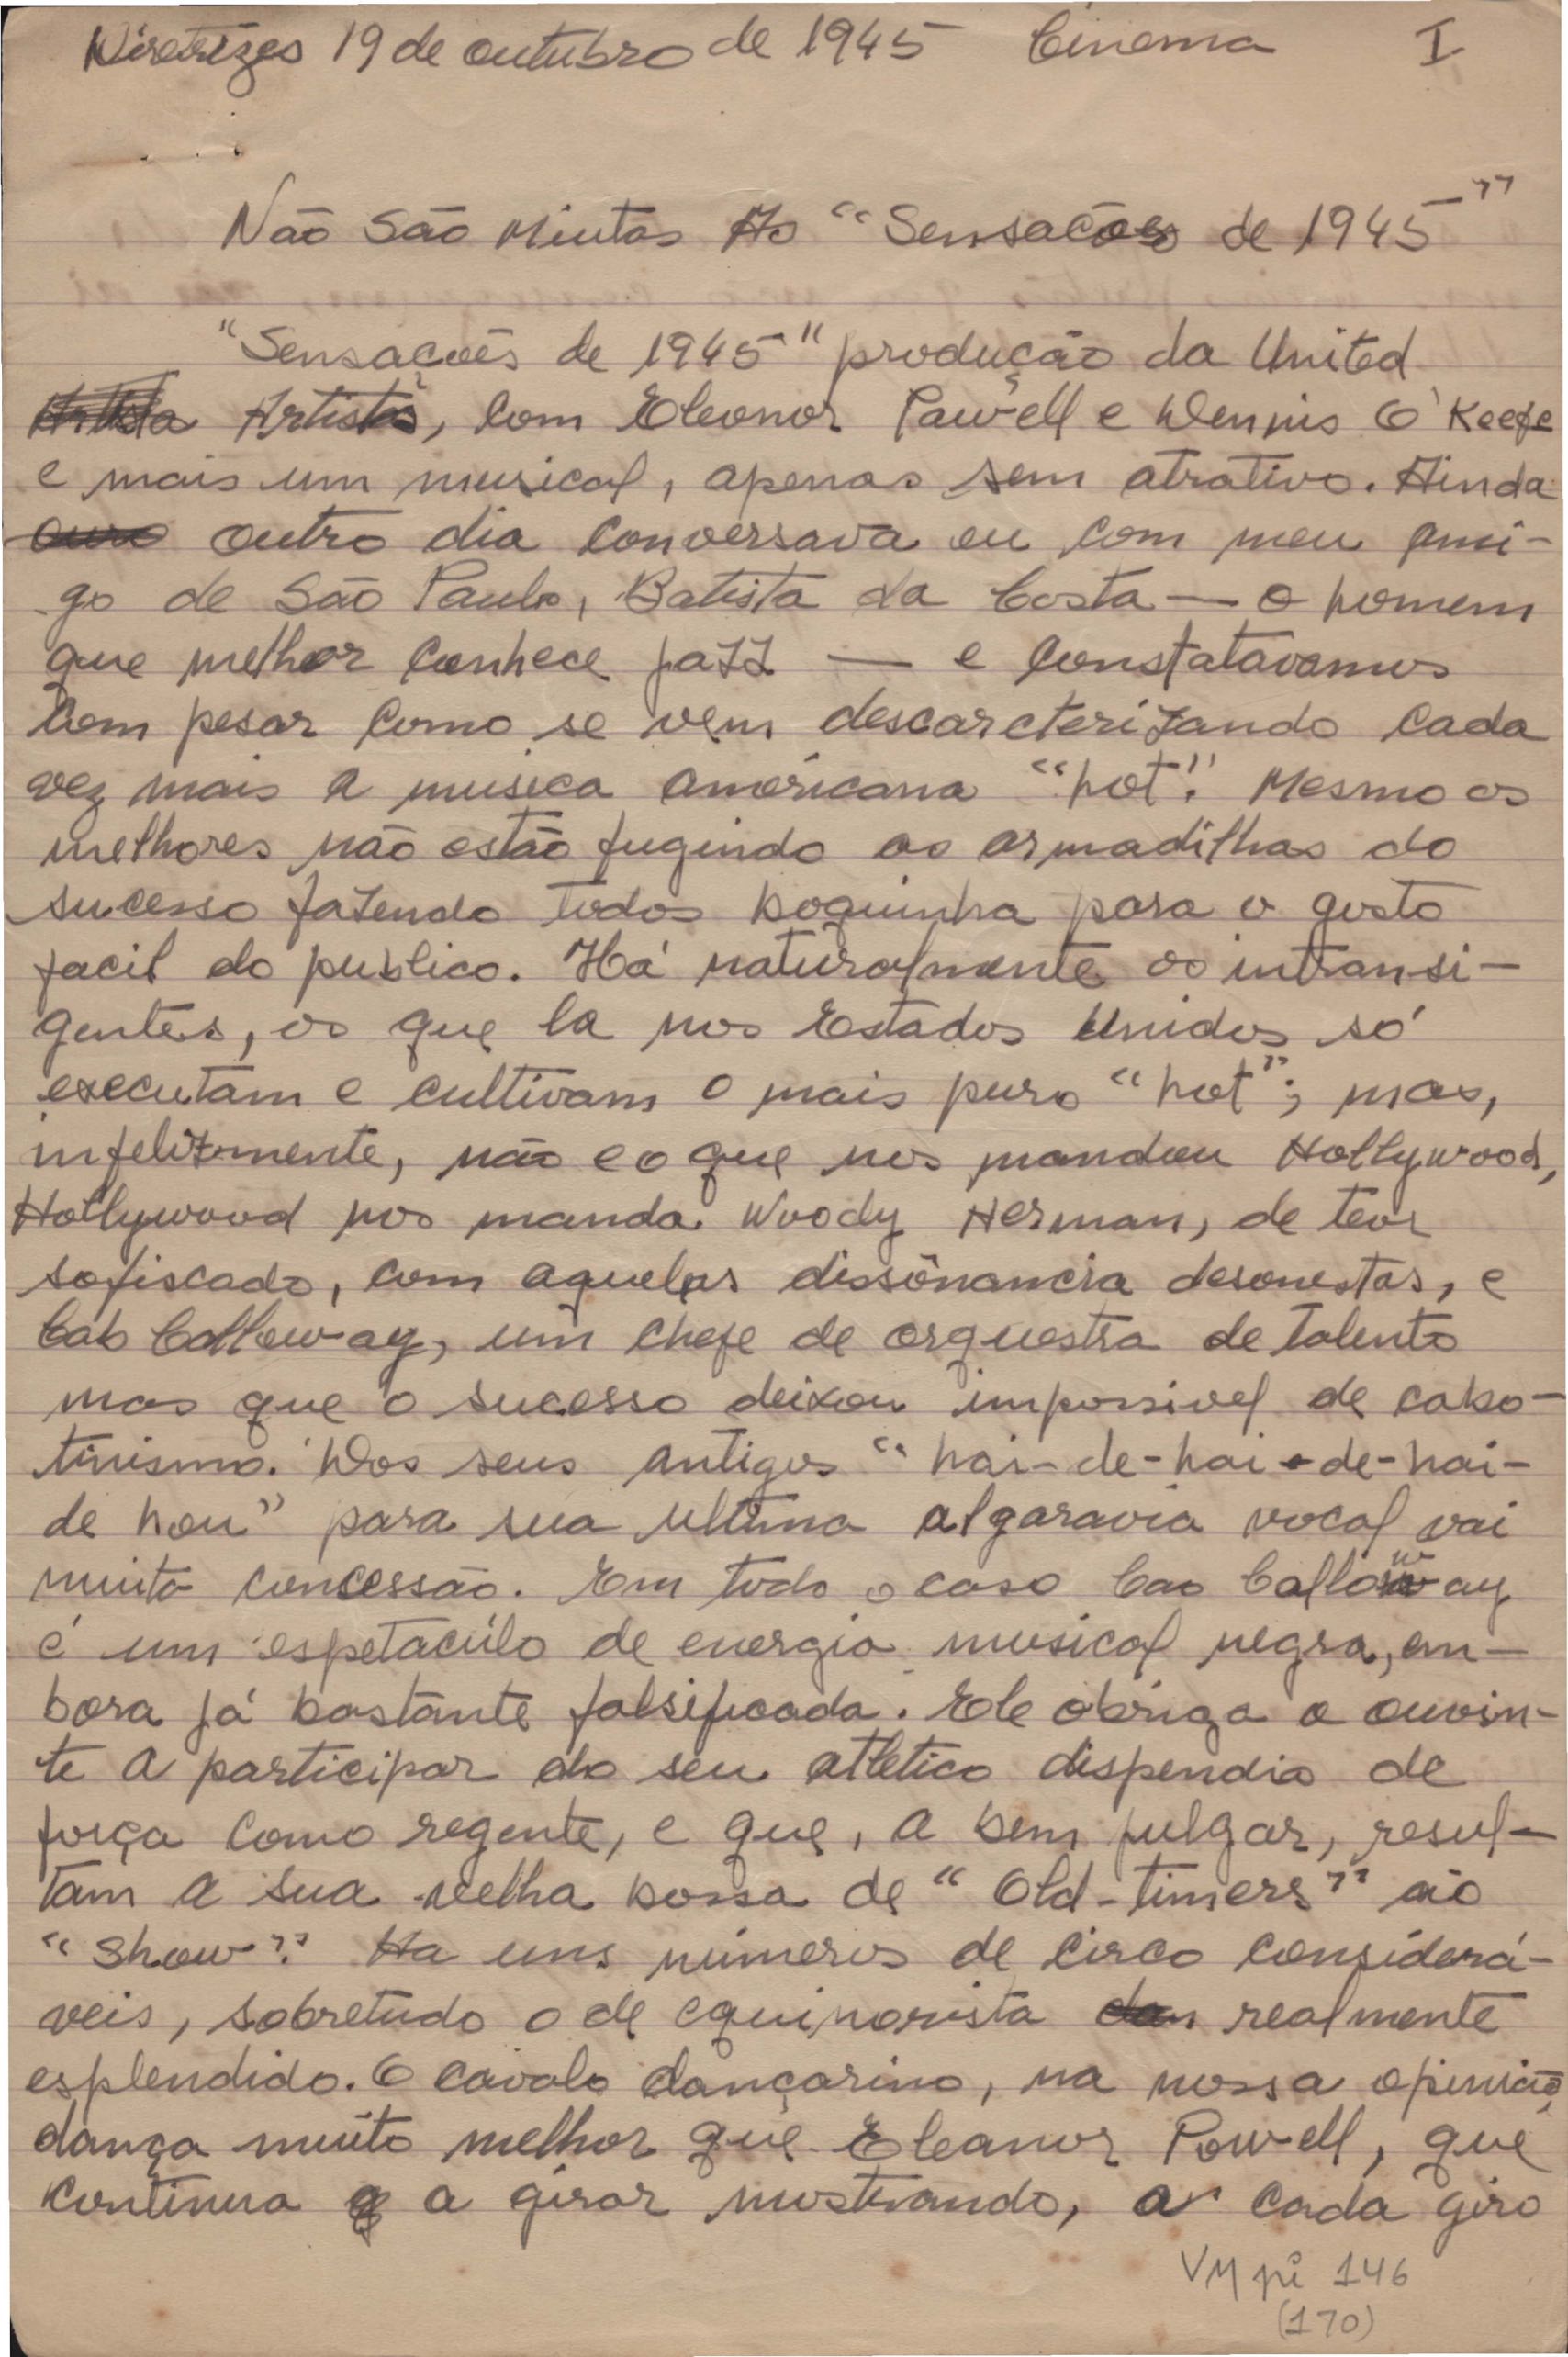 Diretrizes 19 de outubro de 1945 Cinema I
Não São Muitas As "Sensacões de 1945"
"Sensacoẽs de 1945" produção da United
Artista Artists, com Eleonor Pawell e Dennis O'Keefe
e mais um musical, apenas sem atrativo. Ainda
ouro outro dia conversava eu com meu ami-
go de São Paulo, Batista da Costa — o homem
que melhor conhece jazz — e constatavamos
com pesar como se vem descarcterizando cada
vez mais a musica americana "hot". Mesmo os
melhores não estão fugindo as armadilhas do
sucesso fazendo todos boquinha para o gosto
facil do publico. Há naturalmente os intransi-
gentes, os que la nos Estados Unidos só
executam e cultivam o mais puro "hot"; mas,
infelizmente, não e o que nos mandou Hollywood,
Hollywood nos manda Woody Herman, de teor
sofiscado, com aquelas dissônancia desonestas, e
Cab Calloway, um chefe de orquestra de talento
mas que o sucesso deixou impossivel de cabo-
tinismo. Dos seus antigos "hai-de-hai-de-hai-
de hou" para sua ultima algaravia vocal vai
muita concessão. Em todo o caso Cab Calloway
é um espetacúlo de energia musical negra, em-
bora já bastante falsificada. Ele obriga o ouvin-
te a participar do seu atletico dispendio de
força como regente, e que, a bem julgar, resul-
tam a sua velha bossa de "Old-timers" ao
"show". Ha uns números de circo considerá-
veis, sobretudo o de equinorista dan realmente
esplendido. O cavalo dançarino, na nossa opinião,
dança muito melhor que Eleanor Powell, que
continua q a girar mostrando, a cada giro
VM pi 146
(170)